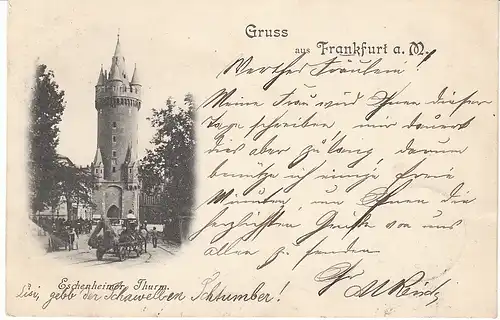 Gruss
aus Frankfurt a. M.
Werthes Fräulein!
Meine Frau wird Ihnen dieser
Tage schreiben, mir dauert
dies aber zu lang darum
benütze ich einige freie
Minuten um Ihnen die
herzlichsten Grüße von uns
allen zu senden
Eschenheimer Thurm.
Lisi, gebb der Schawellen Schtumber!